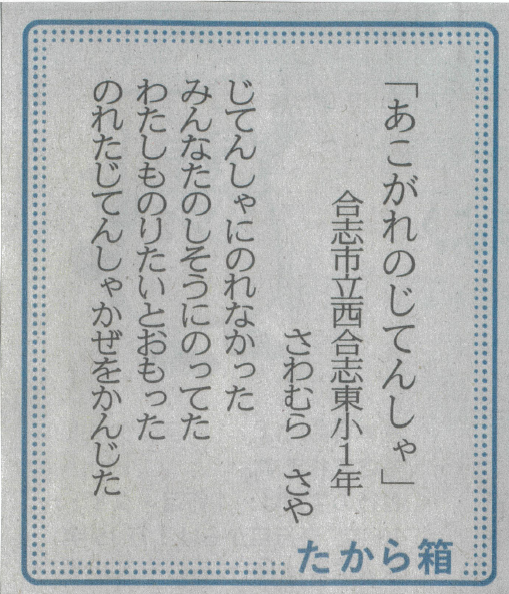 「あこがれのじてんしゃ」
合志市立西合志東小1年
さわむら　さや
じてんしゃにのれなかった
みんなたのしそうにのってた
わたしものりたいとおもった
のれたじてんしゃかぜをかんじた
たから箱